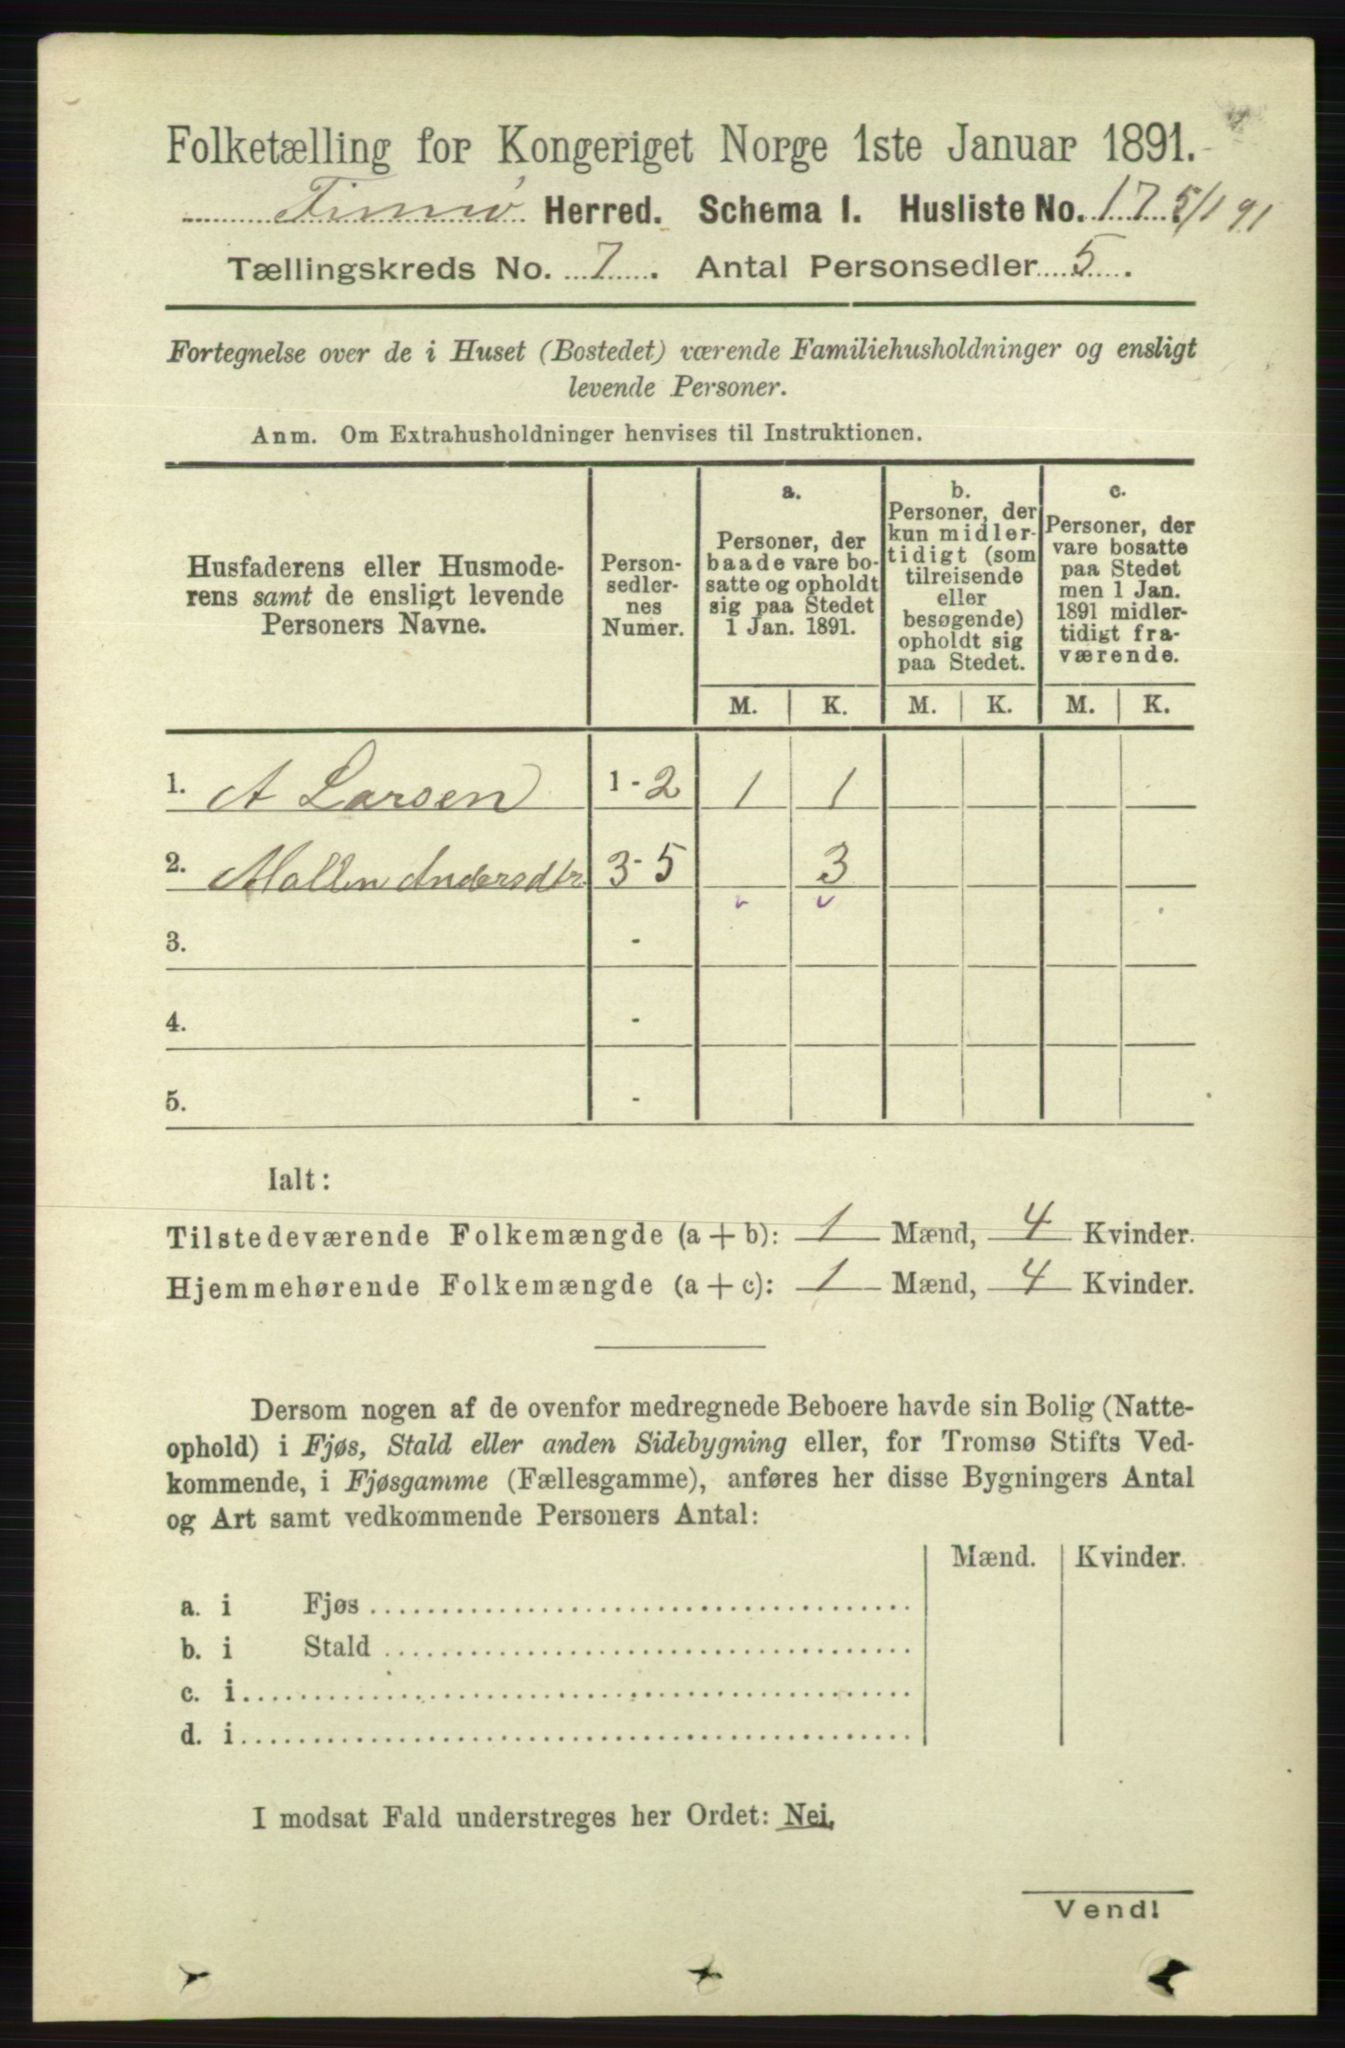 Folketælling for Kongeriget Norge 1ste Januar 1891.
Finnø Herred. Schema I. Husliste No. 17 5/1 91
Tællingskreds No. 7. Antal Personsedler 5.
Fortegnelse over de i Huset (Bostedet) værende Familiehusholdninger og ensligt
levende Personer.
Anm. Om Extrahusholdninger henvises til Instruktionen.
Husfaderens eller Husmode-
rens samt de ensligt levende
Personers Navne.
Person-
sedler-
nes
Numer.
a.
Personer, der
baade vare bo-
satte og opholdt
sig paa Stedet
1 Jan. 1891.
b.
Personer, der
kun midler-
tidigt (som
tilreisende
eller
besøgende)
opholdt sig
paa Stedet.
c.
Personer, der
vare bosatte
paa Stedet
men 1 Jan.
1891 midler-
tidigt fra-
værende.
M. K. M. K. M. K.
1. A Larsen 1-2 1 1
2. Mallin Andersdtr 3-5 3
3. -
4. -
5. -
Ialt:
Tilstedeværende Folkemængde (a + b): 1 Mænd, 4 Kvinder.
Hjemmehørende Folkemængde (a + c): 1 Mænd, 4 Kvinder.
Dersom nogen af de ovenfor medregnede Beboere havde sin Bolig (Natte-
ophold) i Fjøs, Stald eller anden Sidebygning eller, for Tromsø Stifts Ved-
kommende, i Fjøsgamme (Fællesgamme), anføres her disse Bygningers Antal
og Art samt vedkommende Personers Antal:
Mænd. Kvinder.
a. i Fjøs
b. i Stald
c. i
d. i
I modsat Fald understreges her Ordet: Nei.
Vend!